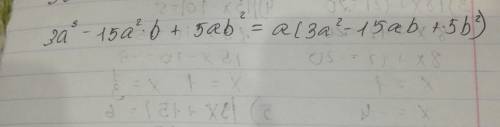 3a³ - 15a²·b + 5ab² = a(3a² - 15ab + 5b²)